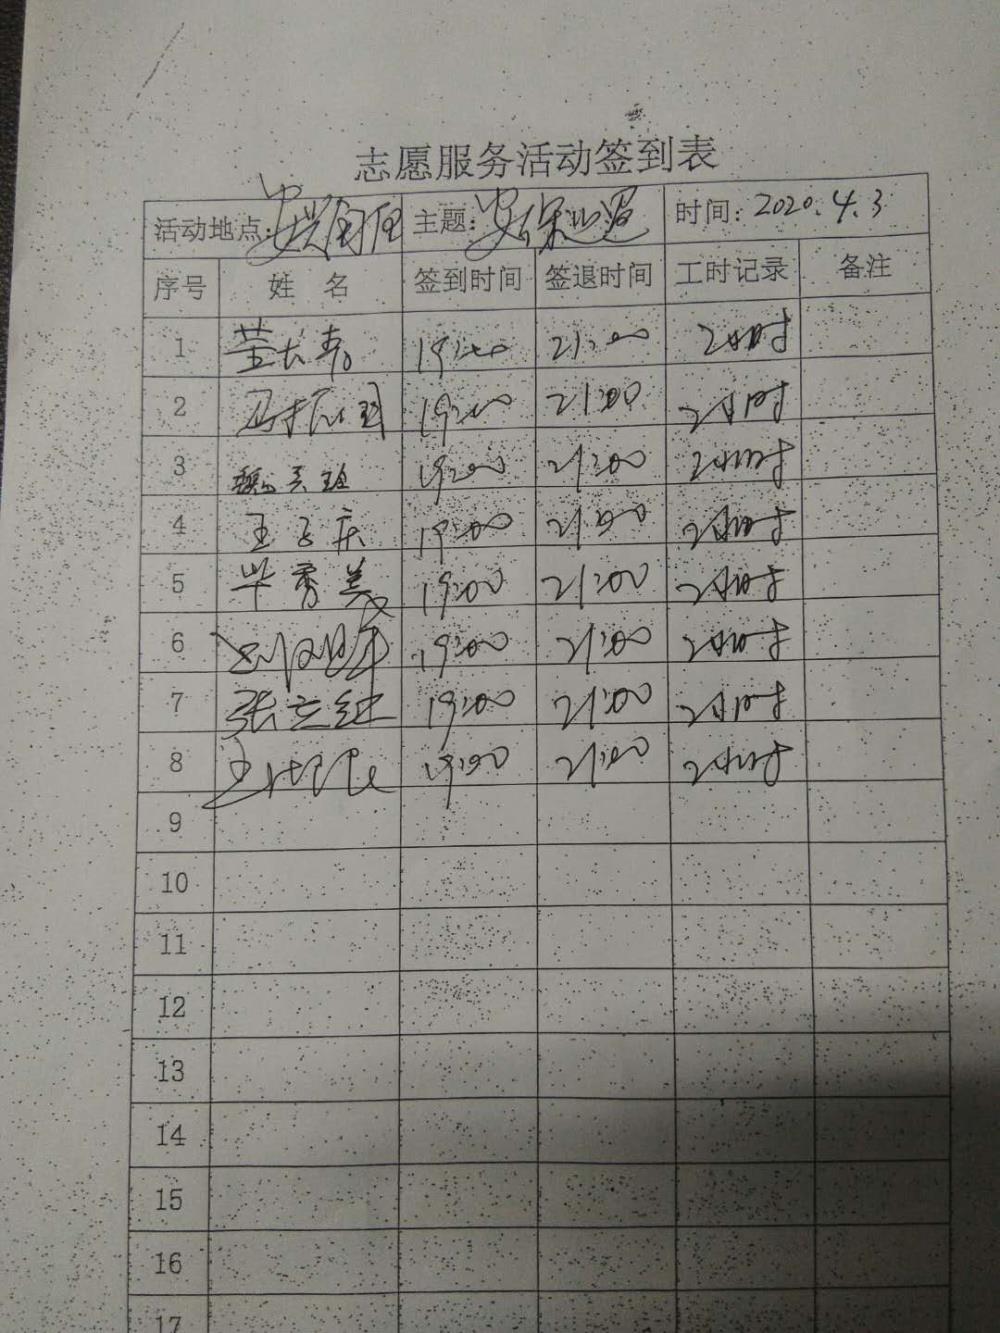 志愿服务活动签到表
活动地点: 主题:安保巡逻 时间:2020.4.3
序号 姓 名 签到时间 签退时间 工时记录 备注
1 19:00 21:00 2小时
2 19:00 21:00 2小时
3 19:00 21:00 2小时
4 王子庆 19:00 21:00 2小时
5 毕秀美 19:00 21:00 2小时
6 19:00 21:00 2小时
7 张立红 19:00 21:00 2小时
8 19:00 21:00 2小时
9
10
11
12
13
14
15
16
17